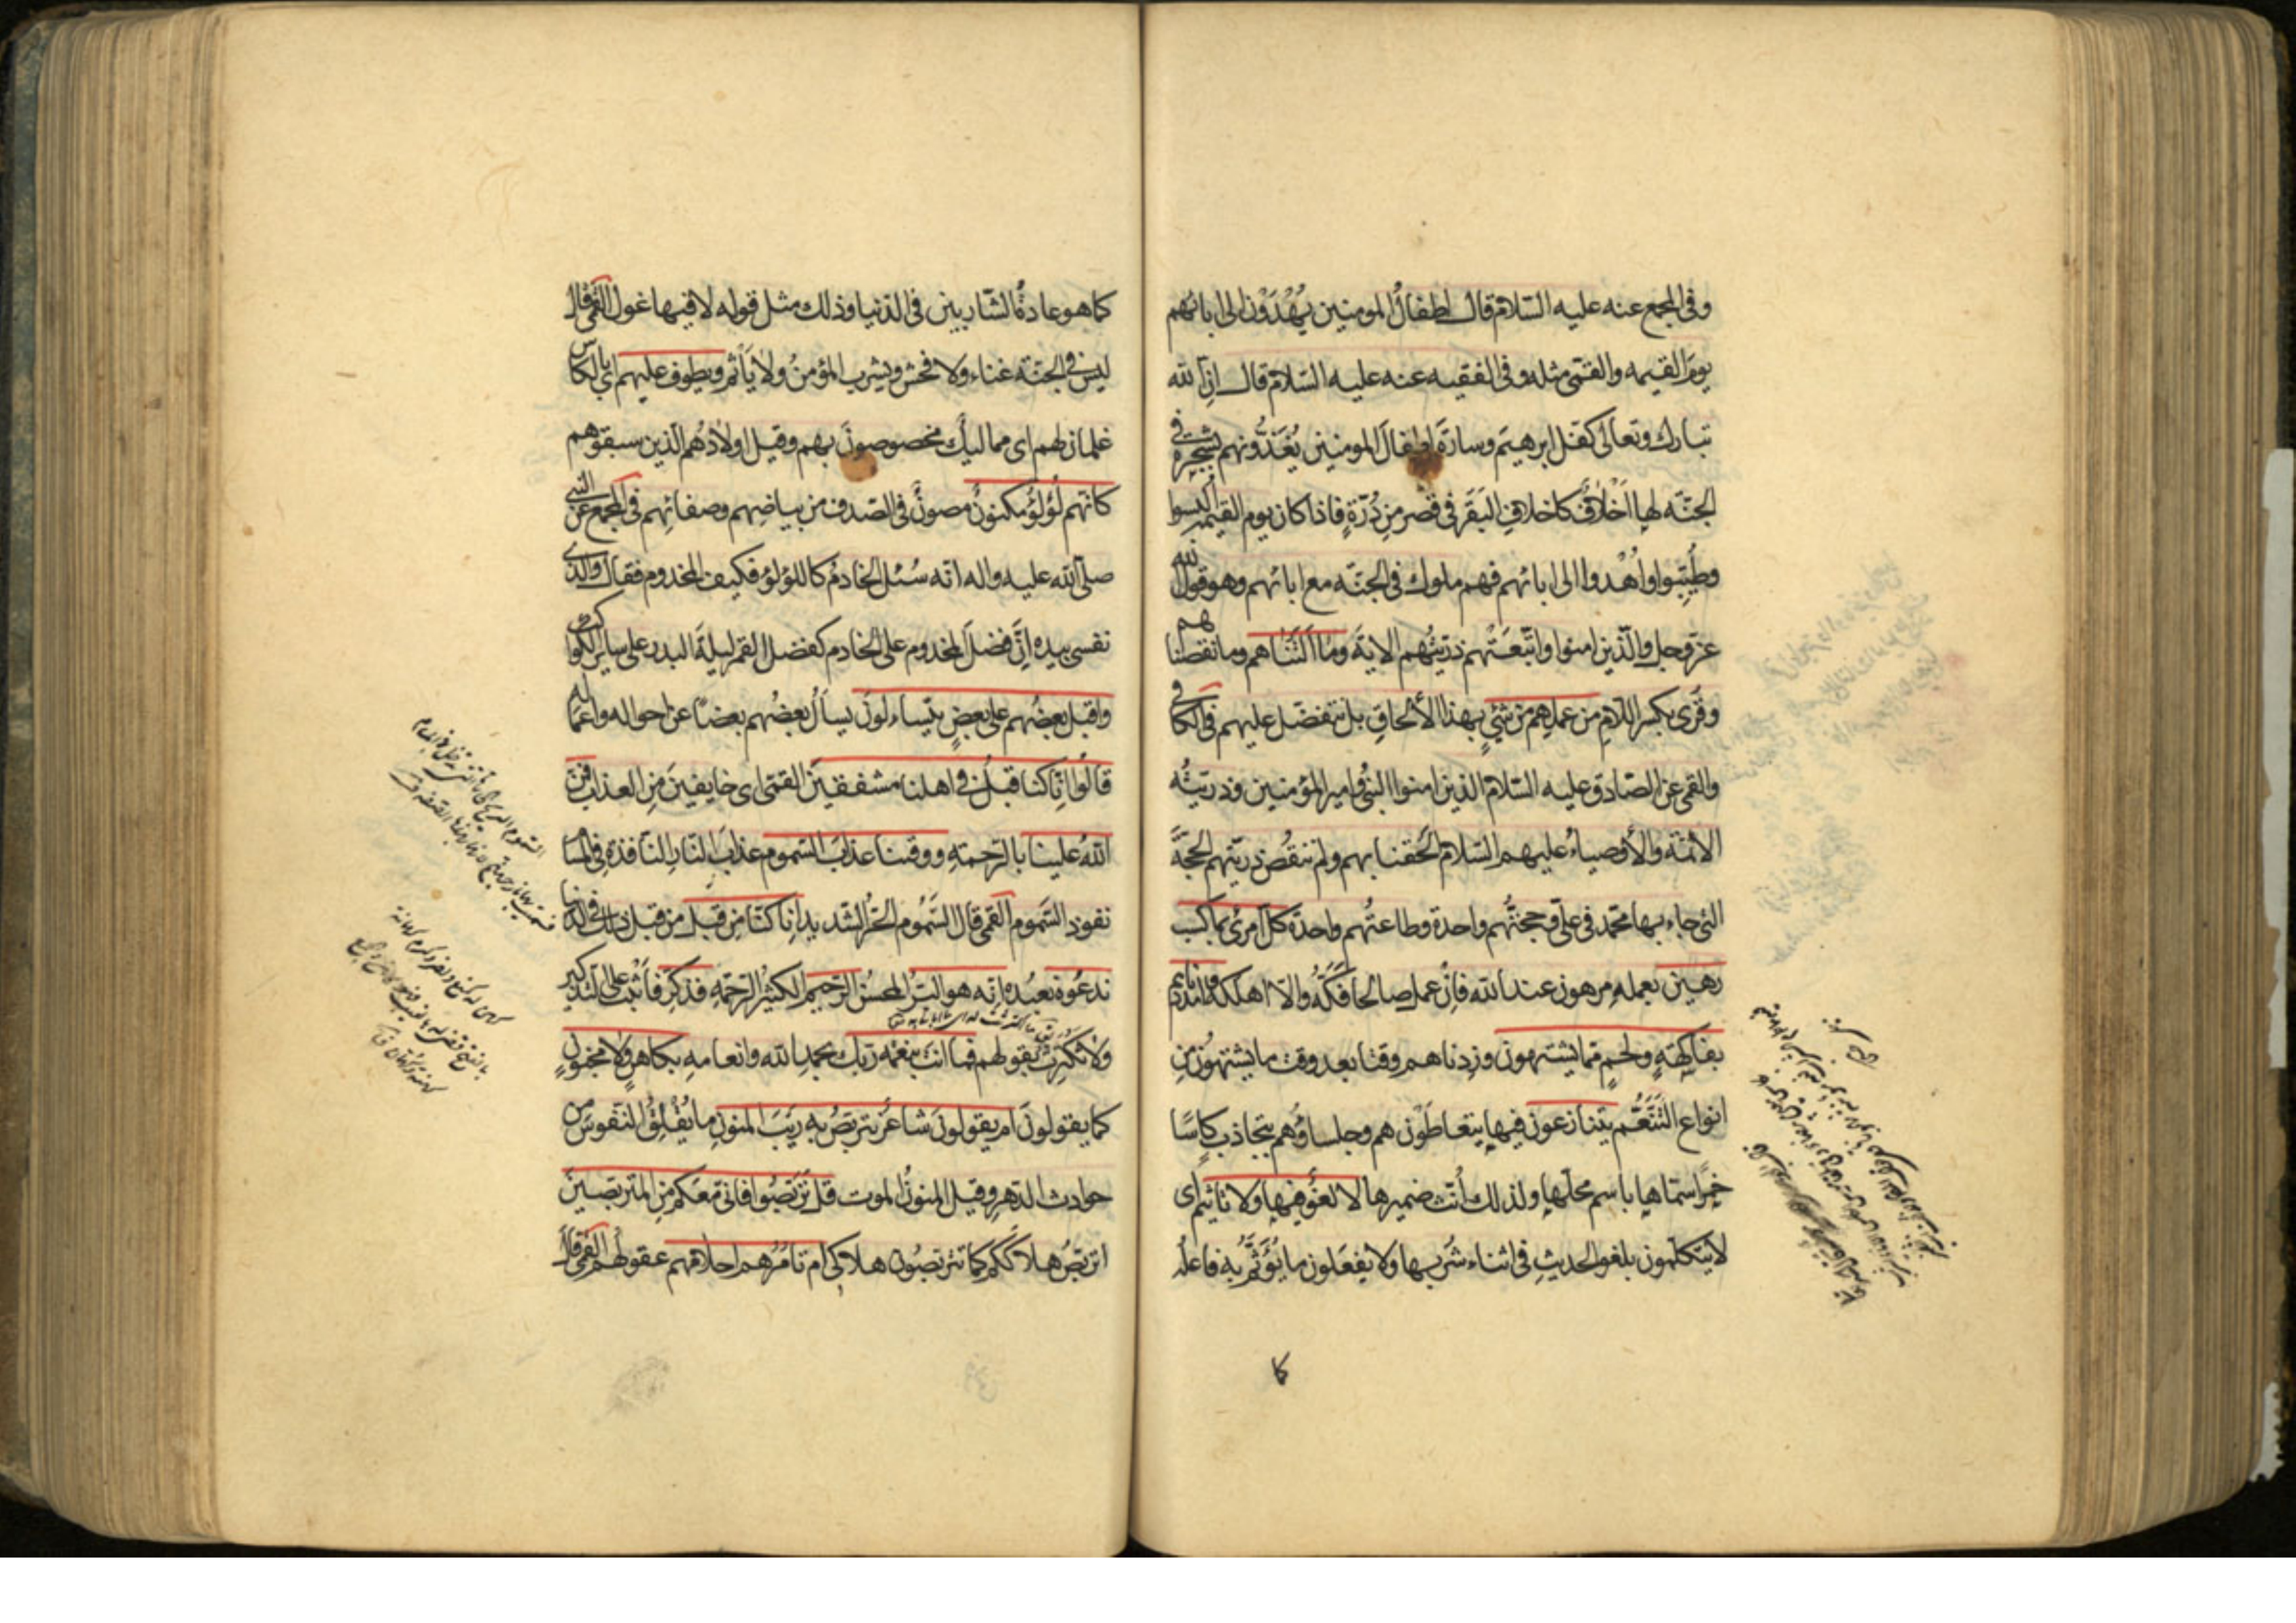 وفى المجمع عنه عليه السلام قال اطفالُ المومنين يُهْدَوْن الى ابائهم
يومَ القيمه والقمّى مثله وفى الفقيه عنه عليه السّلام قال انّ الله
تبارك وتعالى كفل ابرهيمَ وسارَةَ اطفالَ المومنين يُغَذُّونهم بشجرة فى
الجنّه لها اَخْلافٌ كاخلافِ البَقَر فى قصر مِن دُرّةٍ فاذا كان يوم القيمه اُلبِسوا
وطُيِّبوا واُهْدوا الى ابائهم فهم ملوك فى الجنّه مع ابائهم وهو قول الله
عزّ وجل والّذين امنوا واتّبعَتْهم ذرّيتُهم الاية وما اَلَتْناهم وما نقصناهم
وقُرئ بكسر اللامِ من عملِهم من شئٍ بهذا الألحاقِ بل نتفضّل عليهم فى الكافى
والقمى عن الصّادق عليه السّلام الّذين امنوا النبىُّ وامير المؤمنين وذريّتُه
الائمّة والأوصياءُ عليهم السّلام اَلحقنا بهم ولم ننقُص ذريّتهم الحجّة
التى جاء بها محمّد فى علىّ وحجتُّهم واحدة وطاعتُهم واحدة كلّ امرئ بما كسب
رهين بعمله مرهون عند الله فاِنْ عمل صالحًا فكَّهُ والاّ اهلكه وامددناهم
بفاكهةٍ ولحمٍ ممّا يشتهون وزدناهم وقتًا بعد وقت ما يشتهون مِن
انواع التّنَعُّم يتنازعون فيها يتعاطَوْن هم وجلساؤهم بتجاذب كاسًا
خمرًا سمّاها باسم محلّها ولذلك أنّث ضميرها لا لغوٌ فيها ولا تاثيم اى
لا يتكلّمون بلغو الحديثِ فى اثناء شربها ولا يفعَلون ما يُؤَثَّمُ به فاعله
كا
كما هو عادةُ الشّاربين فى الدّنيا وذلك مثل قوله لا فيها غول القمّى قال
ليس فى الجنّة غناء ولا فحش ويشرب المؤمنُ ولا يَأثَم ويطوف عليهم اى بالكاس
غلمان لهم اى مماليك مخصوصون بهم وقيل اولادُهم الّذين سبقوهم
كانّهم لُؤلؤ مكنونٌ مصونٌ فى الصّدف من بياضِهم وصفائِهم فى المجمع عن النبى
صلّى الله عليه واله انّه سُئل الخادمُ كاللؤلؤ فكيف المخدوم فقال والّذى
نفسى بيده اِنَّ فضلَ المخدوم على الخادم كفضل القمر ليلةَ البدر على ساير الكواكب
واقبل بعضُهم على بعضٍ يتساءلون يسأل بعضُهم بعضًا عن احواله واعماله
قالُوا انّا كنّا قبلُ فى اهلنا مشفقينَ القمّى اى خايفينَ مِن العذاب فمنّ
اللهُ علينا بالرّحمةِ ووقنا عذابَ السّموم عذابَ النّار النّافذة فى المسام
نفوذ السَّموم القمى قال السَّمُوم الحَرُّ الشّديد انّا كنّا مِن قبل من قبل ذلك فى الدنيا
ندعُوهُ نعبُده انّه هو البرّ المحسنُ الرّحيم الكثيرُ الرّحمةِ فذكّر فاَثْبت على التذكير
ولا تكترِث بقولهم فما انت بنعمه ربّك بحمد الله وانعامه بكاهنٍ ولا مجنونٍ
كما يقولونَ ام يقولونَ شاعرٌ نتربّصُ به ريبَ المنونِ ما يُقْلِقُ النّفوسَ من
حوادث الدّهر وقيل المنونُ الموت قل تَرَبَّصُوا فانّى معكم مِن المتربّصينَ
اتربّصُ هلاككم كما تتربّصُون هلاكى ام تامُرُهم احلامُهم عقولُهم القمى قال